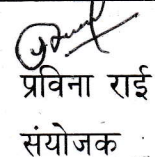 प्रविना राई
संयोजक